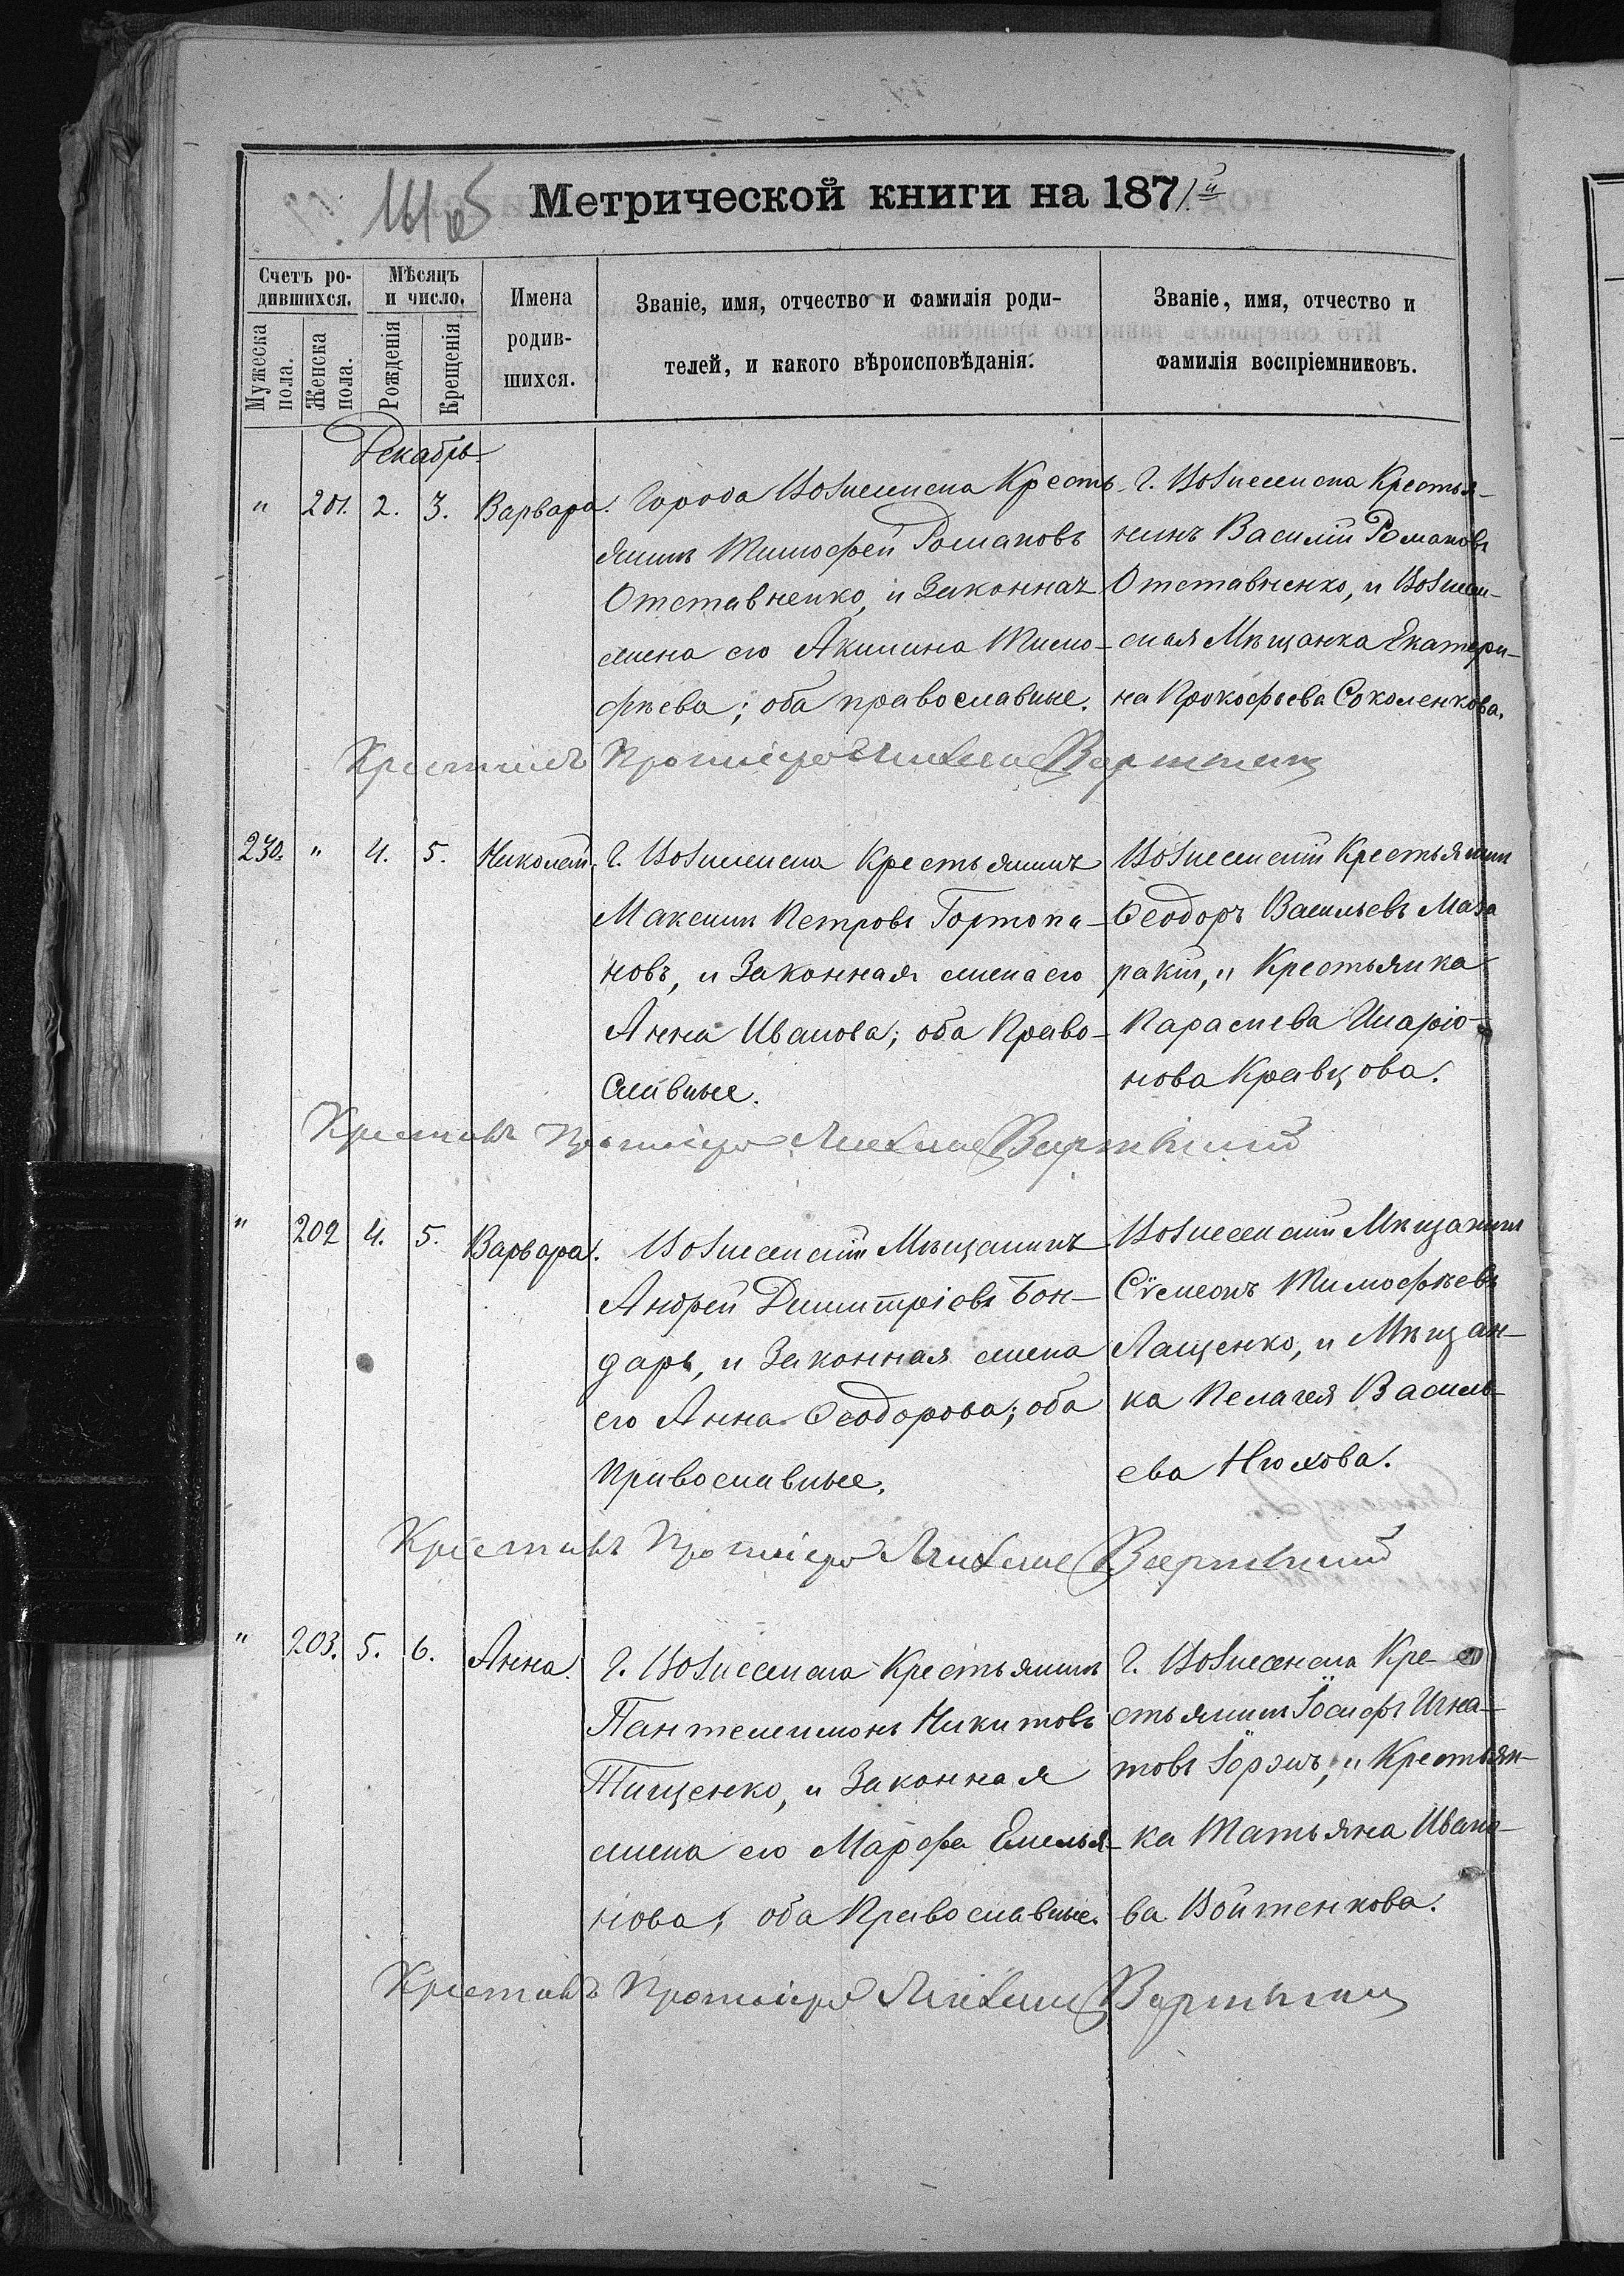 161 об
Метрической книги на 1871.й
Счетъ ро-
дившихся.
Мѣсяцъ
и число.
Мужеска
пола.
Женска
пола.
Рожденія
Крещенія
Имена
родив-
шихся.
Званіе, имя, отчество и фамилія роди-
телей, и какого вѣроисповѣданія.
Званіе, имя, отчество и
фамилія воспріемниковъ.
Декабрь.
" 201. 2. 3. Варвара.
Города Вознесенска Кресть-
янинъ Тимофей Романовъ
Отставненко, и Законная
жена его Акилина Тимо-
фѣева; оба православные.
Г. Вознесенска Крестья-
нинъ Василій Романовъ
Отставненко, и Вознесен-
ская Мѣщанка Екатери-
на Прокофьева Соколенкова.
Крестилъ Протоіерей Михаилъ
230. " 4. 5. Николай.
Г. Вознесенска Крестьянинъ
Максимъ Петровъ Гортопа-
новъ, и Законная жена его
Анна Иванова; оба Право-
славные.
Вознесенскій Крестьянинъ
Ѳеодоръ Васильевъ Маза
ракій, и Крестьянка
Параскева Иларіо-
нова Кравцова.
Крестилъ Протоіерей Михаилъ
" 202 4. 5. Варвара.
Вознесенскій Мѣщанинъ
Андрей Димитріевъ Бон-
дарь, и Законная жена
его Анна Ѳеодорова; оба
Православные.
Вознесенскій Мѣщанинъ
Сѵмеонъ Тимофѣевъ
Лащенко, и Мѣщан-
ка Пелагея Василь-
ева Нюхова.
Крестилъ Протоіерей Михаилъ
" 203. 5. 6. Анна.
Г. Вознесенска Крестьянинъ
Пантелеимонъ Никитовъ
Тищенко, и Законная
жена его Марфа Емелья-
нова; оба Православные.
Г. Вознесенска Кре-
стьянинъ Іосифъ Игна-
товъ и Крестьян-
ка Татьяна Ивано-
ва Войтенкова.
Крестилъ Протоіерей Михаилъ